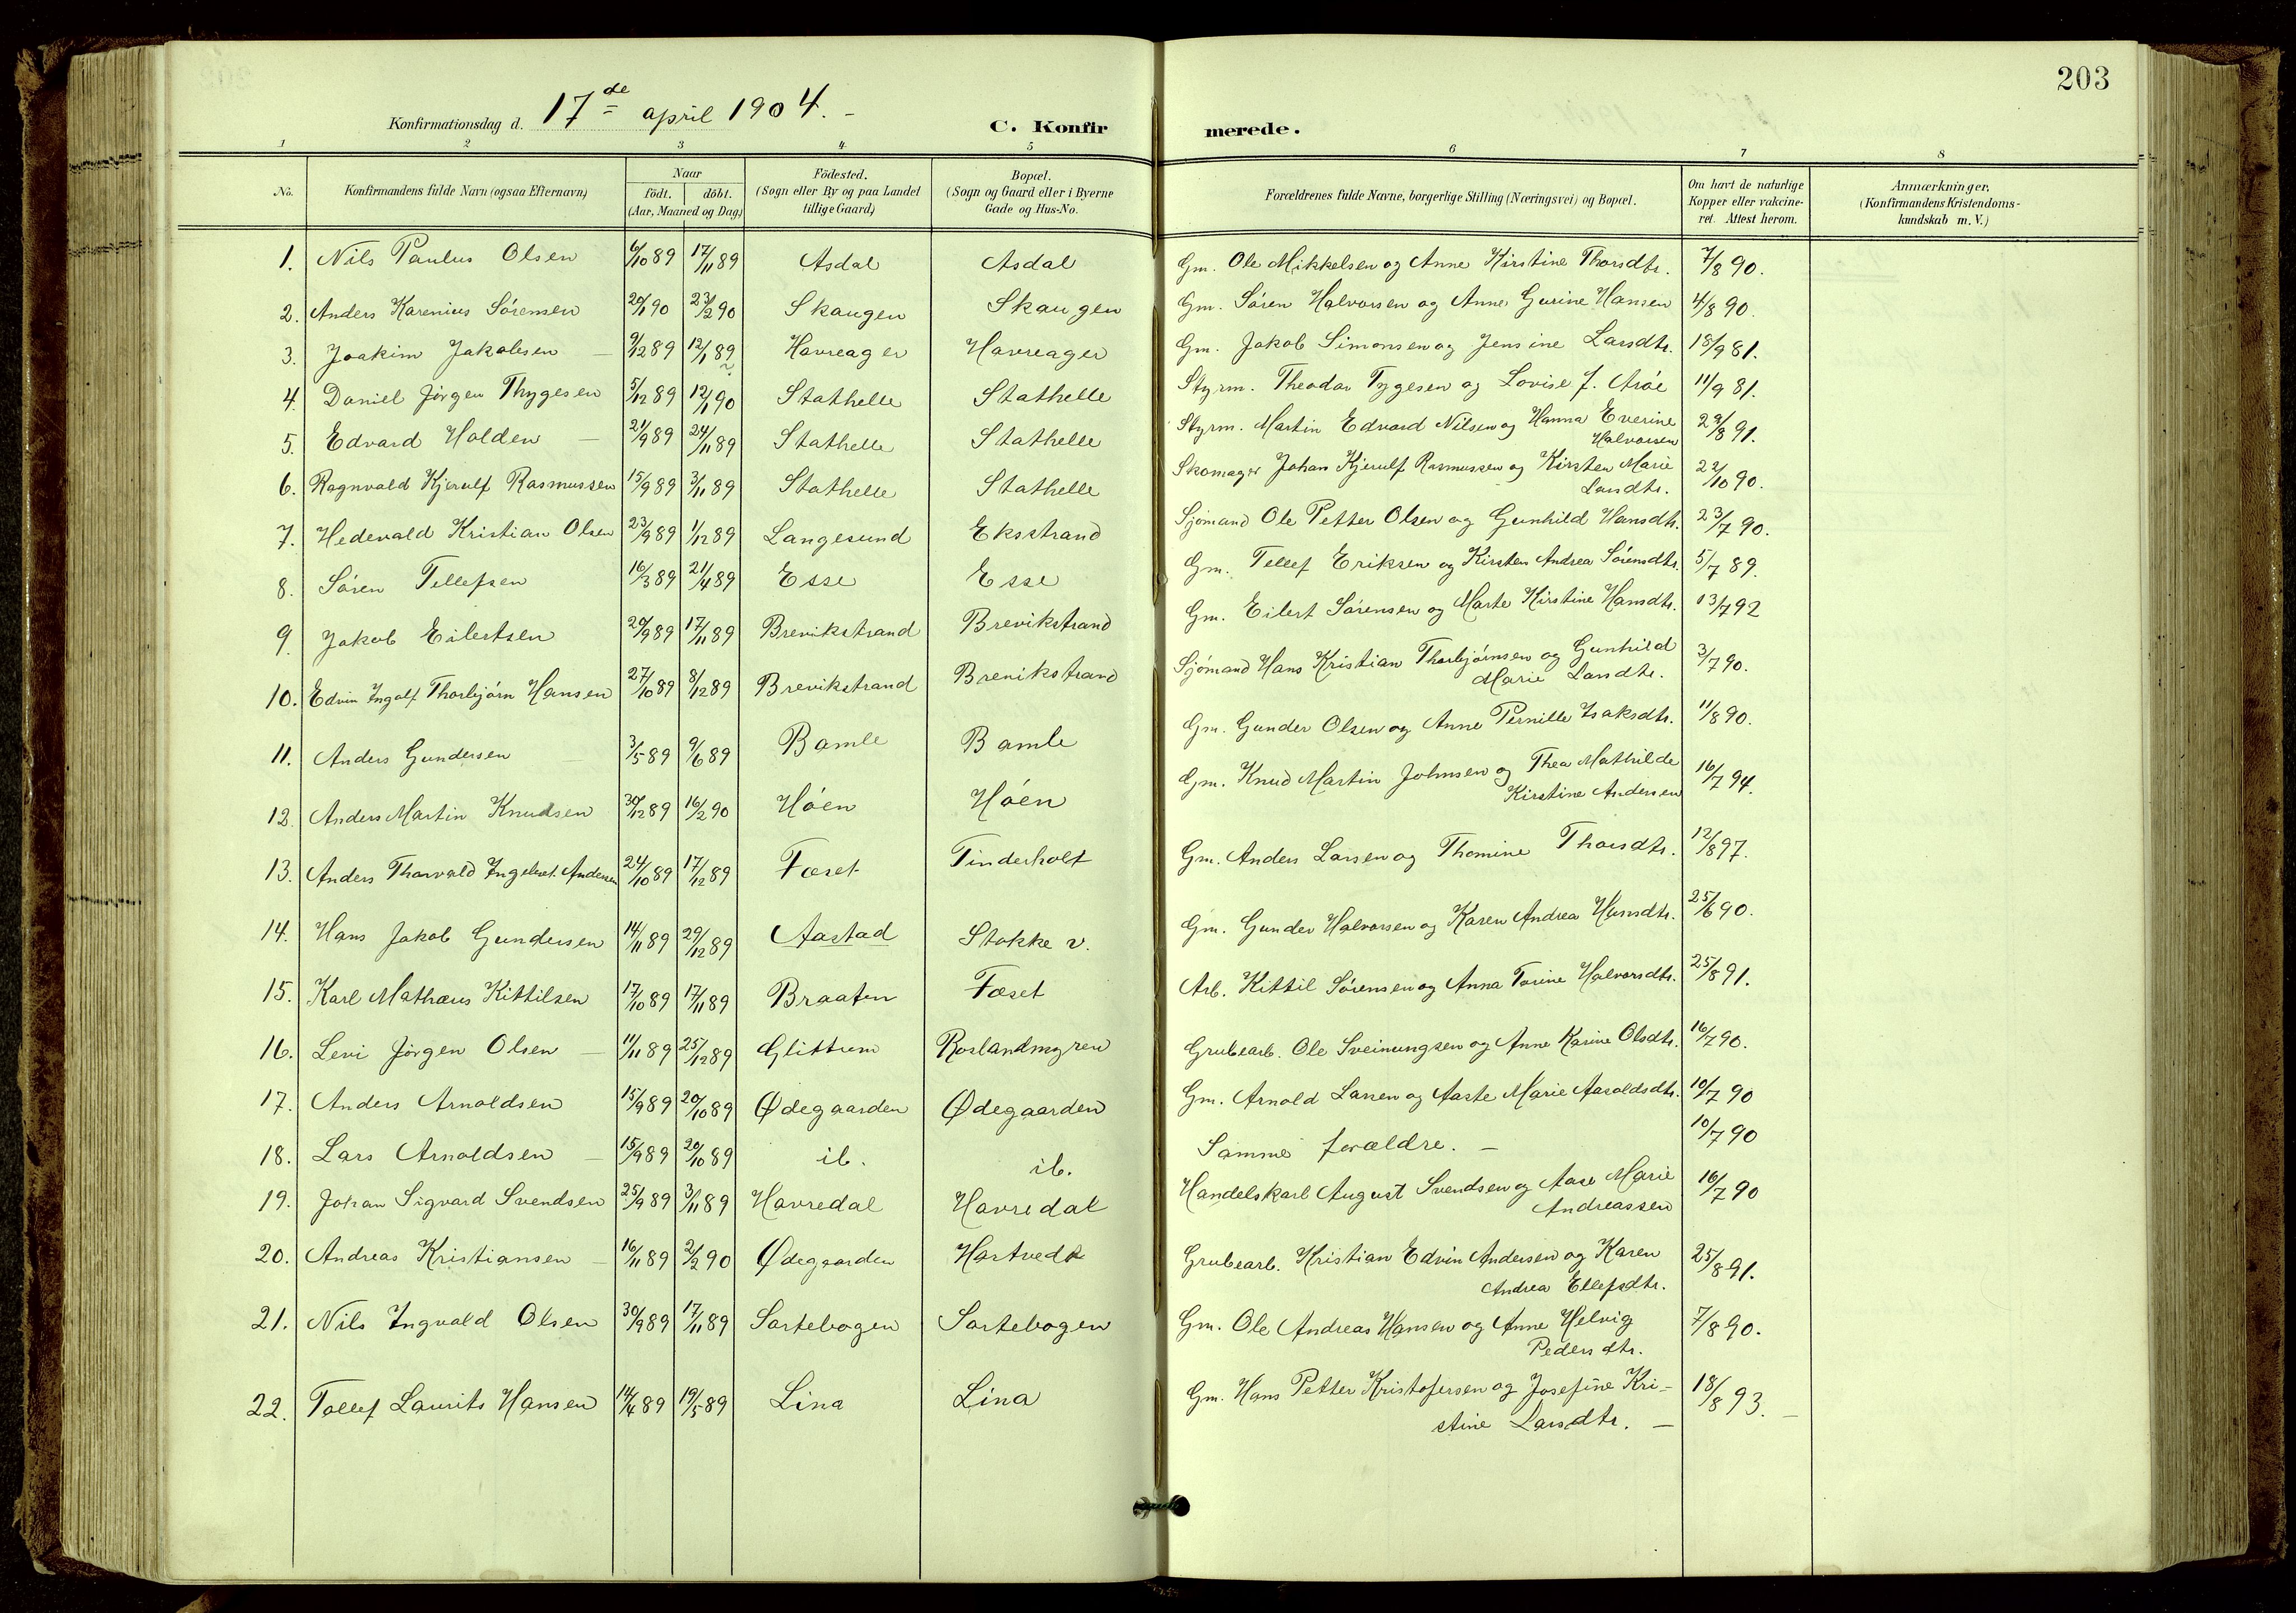 203
Konfirmationsdag d. 17de april 1904. -
C. Konfirmerede.
1 2 3 4 5 6 7 8
No. Konfirmandens fulde Navn (ogsaa Efternavn) Naar födt. döbt. (Aar, Maaned og Dag) Födested. (Sogn eller By og paa Landet tillige Gaard) Bopæl. (Sogn og Gaard eller i Byerne Gade og Hus-No. Forældrenes fulde Navne, borgerlige Stilling (Næringsvei) og Bopæl. Om havt de naturlige Kopper eller vakcineret. Attest herom. Anmærkninger. (Konfirmandens Kristendomskundskab m. V.)
1. Nils Paulus Olsen 6/10 89 17/11 89 Asdal Asdal Gm. Ole Mikkelsen og Anne Kirstine Thorsdtr. 7/8 90.
2. Anders Karenius Sörensen 20/1 90 23/2 90 Skaugen Skaugen Gm. Sören Halvorsen og Anne Gurine Hansen 4/8 90.
3. Joakim Jakobsen 9/12 89 12/1 89 Havreager Havreager Gm. Jakob Simonsen og Jensine Larsdtr. 18/9 81.
4. Daniel Jörgen Thygesen 5/12 89 12/1 90 Stathelle Stathelle Styrm. Theodor Tygesen og Lovise J. Aröe 11/9 81.
5. Edvard Holden 21/9 89 24/11 89 Stathelle Stathelle Styrm. Martin Edvard Nilsen og Hanna Everine
Halvorsen 29/8 91.
6. Ragnvald Kjerulf Rasmussen 15/9 89 3/11 89 Stathelle Stathelle Skomager Johan Kjerulf Rasmussen og Kirsten Marie
Larsdtr. 22/10 90.
7. Hedevald Kristian Olsen 23/9 89 1/12 89 Langesund Eksstrand Sjömand Ole Petter Olsen og Gunhild Hansdtr. 23/7 90.
8. Sören Tellefsen 16/3 89 21/4 89 Esse Esse Gm. Tellef Eriksen og Kirsten Andrea Sörensdtr. 5/7 89.
9. Jakob Eilertsen 20/9 89 17/11 89 Brevikstrand Brevikstrand Gm. Eilert Sörensen og Marte Kirstine Hansdtr. 13/7 92
10. Edvin Ingolf Thorbjörn Hansen 27/10 89 8/12 89 Brevikstrand Brevikstrand Sjömand Hans Kristian Thorbjörnsen og Gunhild
Marie Larsdtr. 3/7 90.
11. Anders Gundersen 3/5 89 9/6 89 Bamle Bamle Gm. Gunder Olsen og Anne Pernille Isaksdtr. 11/8 90.
12. Anders Martin Knudsen 30/12 89 16/2 90 Höen Höen Gm. Knud Martin Johnsen og Thea Mathilde
Kirstine Andersen 16/7 94.
13. Anders Thorvald Ingebret Andersen 24/10 89 17/12 89 Føset Tinderholt Gm. Anders Larsen og Thomine Thorsdtr. 12/8 97.
14. Hans Jakob Gundersen 14/11 89 29/12 89 Aastad Stokke v. Gm. Gunder Halvorsen og Karen Andrea Hansdtr. 25/6 90.
15. Karl Mathæus Kittilsen 17/10 89 17/11 89 Braaten Føset Arb. Kittil Sörensen og Anna Torine Halvorsdtr. 25/8 91.
16. Levi Jörgen Olsen 11/11 89 25/12 89 Glittum Roslandmyren Grubearb. Ole Sveinungsen og Anne Karine Olsdtr. 16/7 90.
17. Anders Arnoldsen 15/9 89 20/10 89 Ødegaarden Ødegaarden Gm. Arnold Larsen og Aaste Marie Aaroldsdtr. 10/7 90
18. Lars Arnoldsen 15/9 89 20/10 89 ib. ib. Samme forældre. - 10/7 90
19. Johan Sigvard Svendsen 25/9 89 3/11 89 Havredal Havredal Handelskarl August Svendsen og Aase Marie
Andreassen 16/7 90
20. Andreas Kristiansen 16/11 89 2/2 90 Ødegaarden Hartvedt Grubearb. Kristian Edvin Andersen og Karen
Andrea Ellefsdtr. 25/8 91.
21. Nils Ingvald Olsen 30/9 89 17/11 89 Sartebogen Sartebogen Gm. Ole Andreas Hansen og Anne Helvig
Pedersdtr. 7/8 90.
22. Tollef Laurits Hansen 14/4 89 19/5 89 Lina Lina Gm. Hans Petter Kristofersen og Josefine Kri-
stine Larsdtr. - 18/8 93.